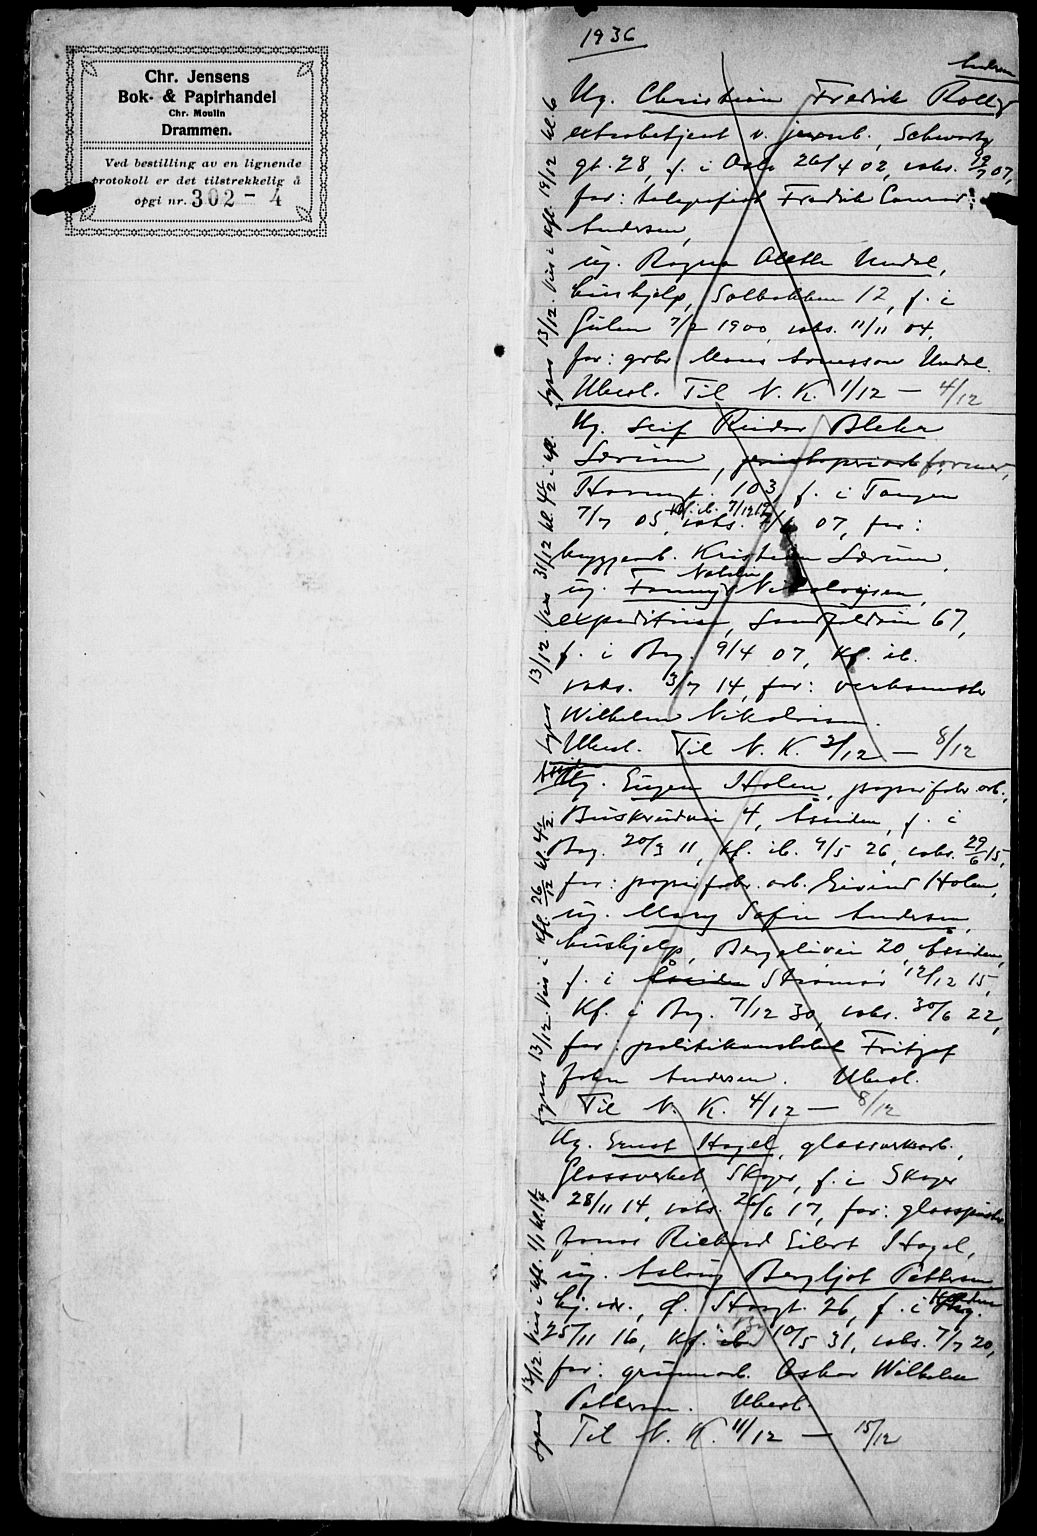 Chr. Jensens
Bok- & Papirhandel
Chr. Moulin
Drammen.
Ved bestilling av en lignende
protokoll er det tilstrekkelig å
opgi nr. 302 - 4
1936
Andersen
Ug. Christian Fredrik Rolly
extrabetjent v. jernb. Schwartz
gt. 28, f. i Oslo 26/4 02, vaks. 07,
far: telegrafist Fredrik Conrad
Andersen,
ug. Ragna Alette Undal,
hushjelp, Solbakken 12, f. i
Gulen 7/2 1900, vaks. 11/11 04,
far: grbr. Mons Undal.
Ubesl. Til N. K. 1/12 — 4/12
Lyses 13/12. Vies i kfl. 19/12 kl. 6
Ug. Leif Reidar Bleka
Særum, former,
Havnegt. 103, f. i Tangen
7/7 05, vaks. 07, far:
byggearb. Kristian Særum,
ug. Fanny Nikolaysen,
expeditrise, 67,
f. i Brg. 9/4 07, kf. ib.
vaks. 3/7 14, far:
Wilhelm
Ubesl. Til N. K. 3/12 — 8/12
Lyses 13/12. Vies 31/12 kl. 4½ i kfl.
Ug. Eugen Holen, papirfabr. arb.,
Buskerudvei 4, Åssiden, f. i
Brg. 20/3 11, kf. ib. 9/5 26, vaks. 29/6 15,
far: papirfabr. arb. Eivind Holen,
ug. Mary Sofie Andersen,
hushjelp, Bergslivei 20, Åssiden,
f. i Åssiden Strømsø 12/12 15,
kf. i Brg. 7/12 30, vaks. 30/6 22,
far: politikonstabel Fritjof
John Andersen. Ubesl.
Til N. K. 4/12 — 8/12
Lyses 13/12. Vies i kfl. 26/12 kl. 4½.
Ug. Ernst Hagel, glassverkarb.,
Glassverket Skoger, f. i Skoger
28/11 14, vaks. 26/6 17, far:
Jonas Richard Eilert Hagel,
ug. Aslaug Bergljot Pettersen
f. i
25/11 16, kf. 10/5 31, vaks. 7/7 20,
far: Oskar Wilhelm
Pettersen. Ubesl.
Til N. K. 11/12 — 15/12
Lyses 13/12. Vies i kfl. 1/1